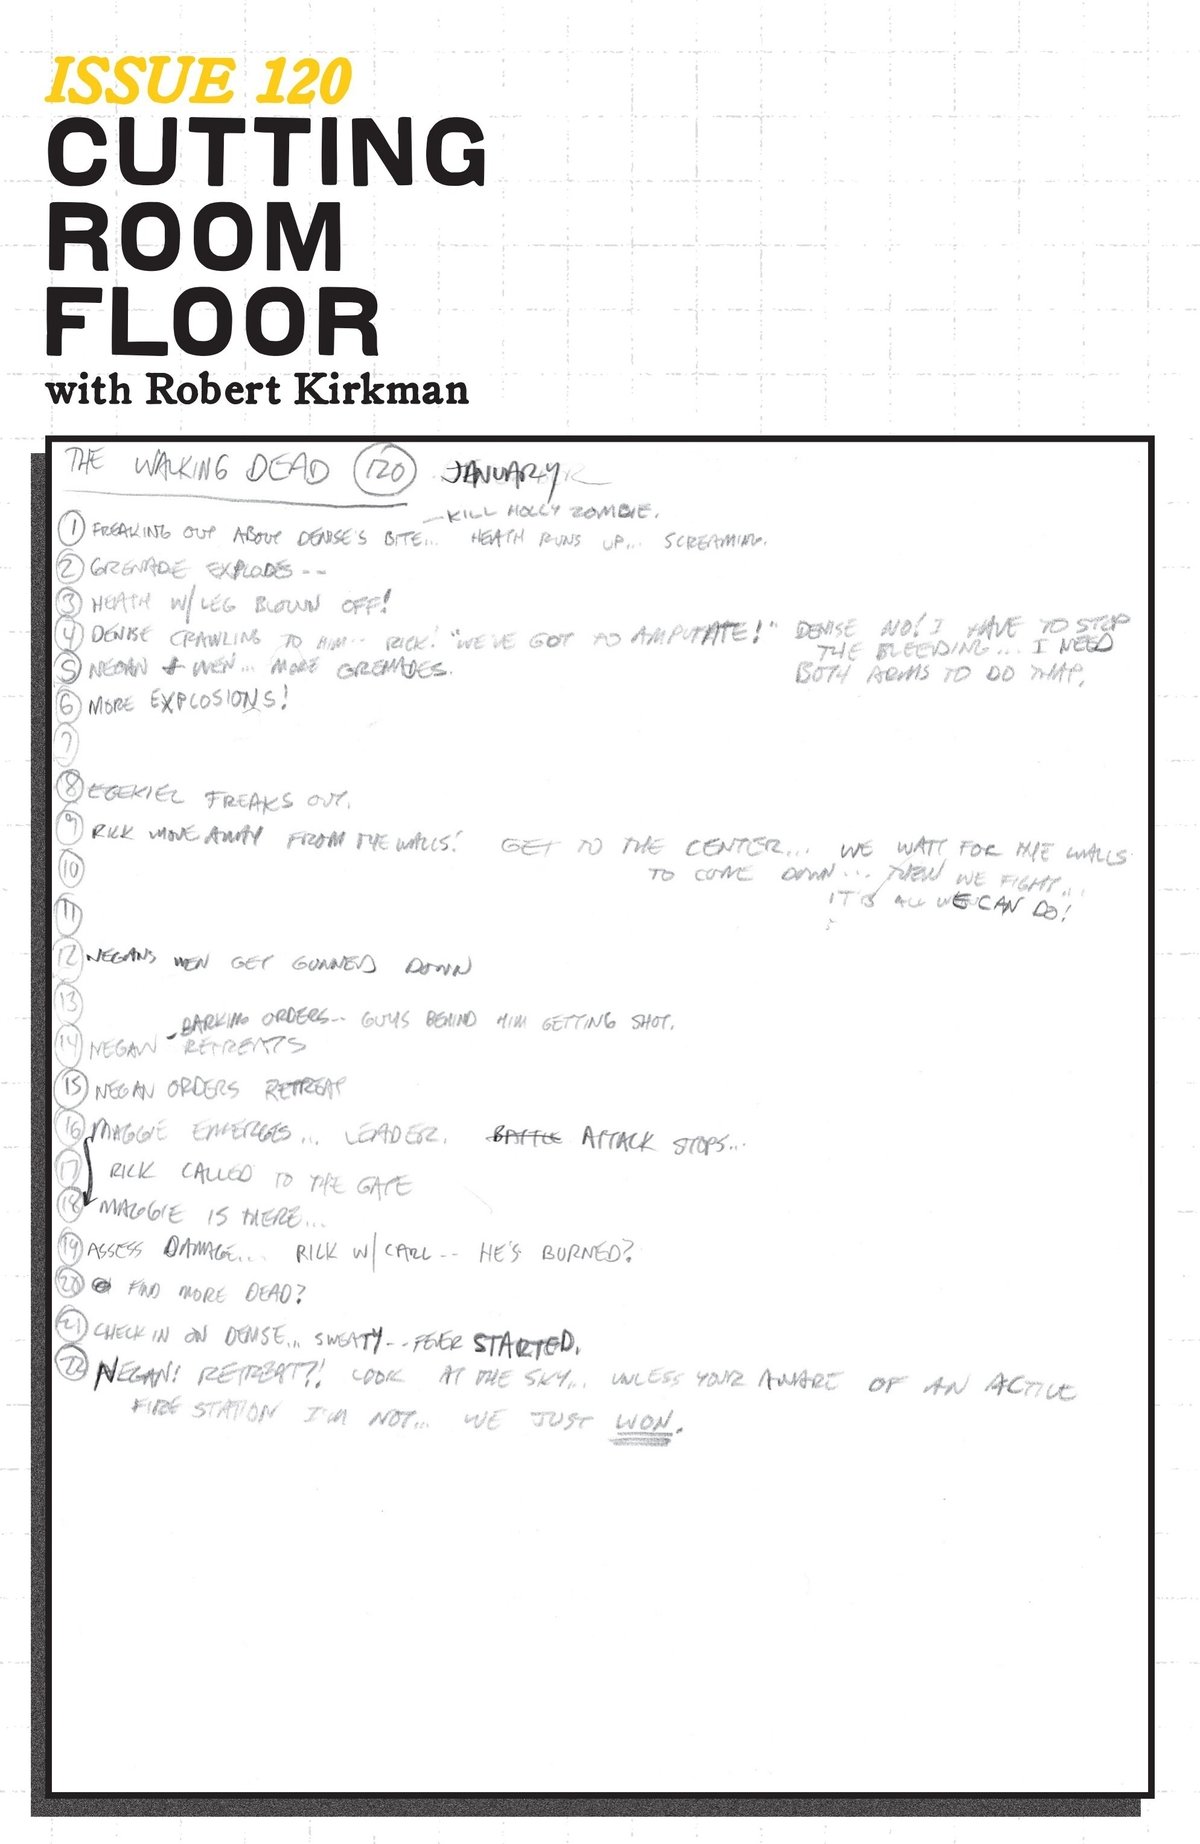 ISSUE 120
CUTTING
ROOM
FLOOR
with Robert Kirkman
THE WALKING DEAD 120 JANUARY
KILL HOLLY ZOMBIE.
1 FREAKING OUT ABOUT DENISE'S BITE... HEATH RUNS UP... SCREAMING.
2 GRENADE EXPLODES--
3 HEATH W/LEG BLOWN OFF!
4 DENISE CRAWLING TO HIM-- RICK! "WE'VE GOT TO AMPUTATE!" DENISE NO! I HAVE TO STOP
THE BLEEDING... I NEED
BOTH ARMS TO DO THAT.
5 NEGAN & MEN... MORE GRENADES.
6 MORE EXPLOSIONS!
7
8 EZEKIEL FREAKS OUT.
9 RICK MOVE AWAY FROM THE WALLS! GET TO THE CENTER... WE WAIT FOR THE WALLS
TO COME DOWN... THEN WE FIGHT...
IT'S ALL WE CAN DO!
10
11
12 NEGANS MEN GET GUNNED DOWN
13
BARKING ORDERS-- GUYS BEHIND HIM GETTING SHOT.
14 NEGAN RETREATS
15 NEGAN ORDERS RETREAT
16 MAGGIE EMERGES... LEADER. BATTLE ATTACK STOPS...
17 RICK CALLED TO THE GATE
18 MAGGIE IS THERE...
19 ASSESS DAMAGE... RICK W/CARL-- HE'S BURNED?
20 FIND MORE DEAD?
21 CHECK IN ON DENISE... SWEATY-- FEVER STARTED.
22 NEGAN! RETREAT?! LOOK AT THE SKY... UNLESS YOUR AWARE OF AN ACTIVE
FIRE STATION I'M NOT... WE JUST WON.